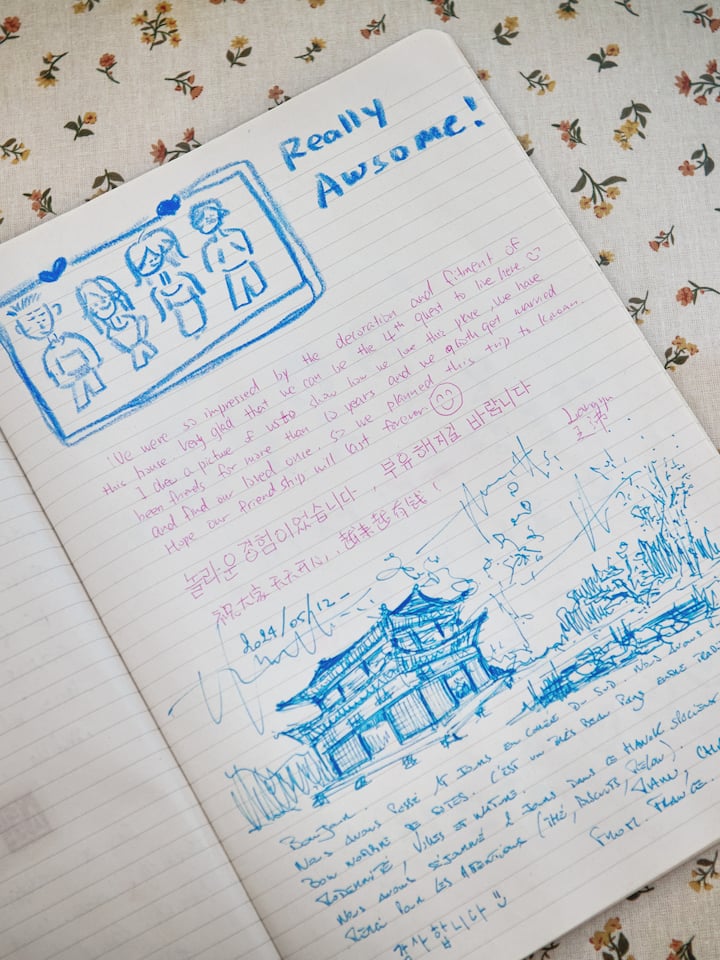 Really
Awsome!
We were so impressed by the decoration and fitment of
this house. Very glad that we can be the 4th guest to live here.
I draw a picture of us to show how we love this place. We have
been friends for more than 10 years and we both get married
and find our loved once, so we planned this trip to Korean.
Hope our friendship will last forever.
놀라운 경험이었습니다, 부유해지길 바랍니다
祝大家天天开心, 越来越有钱!
2024/05/12-
Bonjour.
Nous avons passé 15 jours en Corée du Sud. Nous avons
bon nombre de sites. C'est un très beau pays entre
modernité, villes et nature.
Nous avons séjourné 2 jours dans ce hanok
merci pour les attentions (thé, biscuits,
From France.
감사합니다